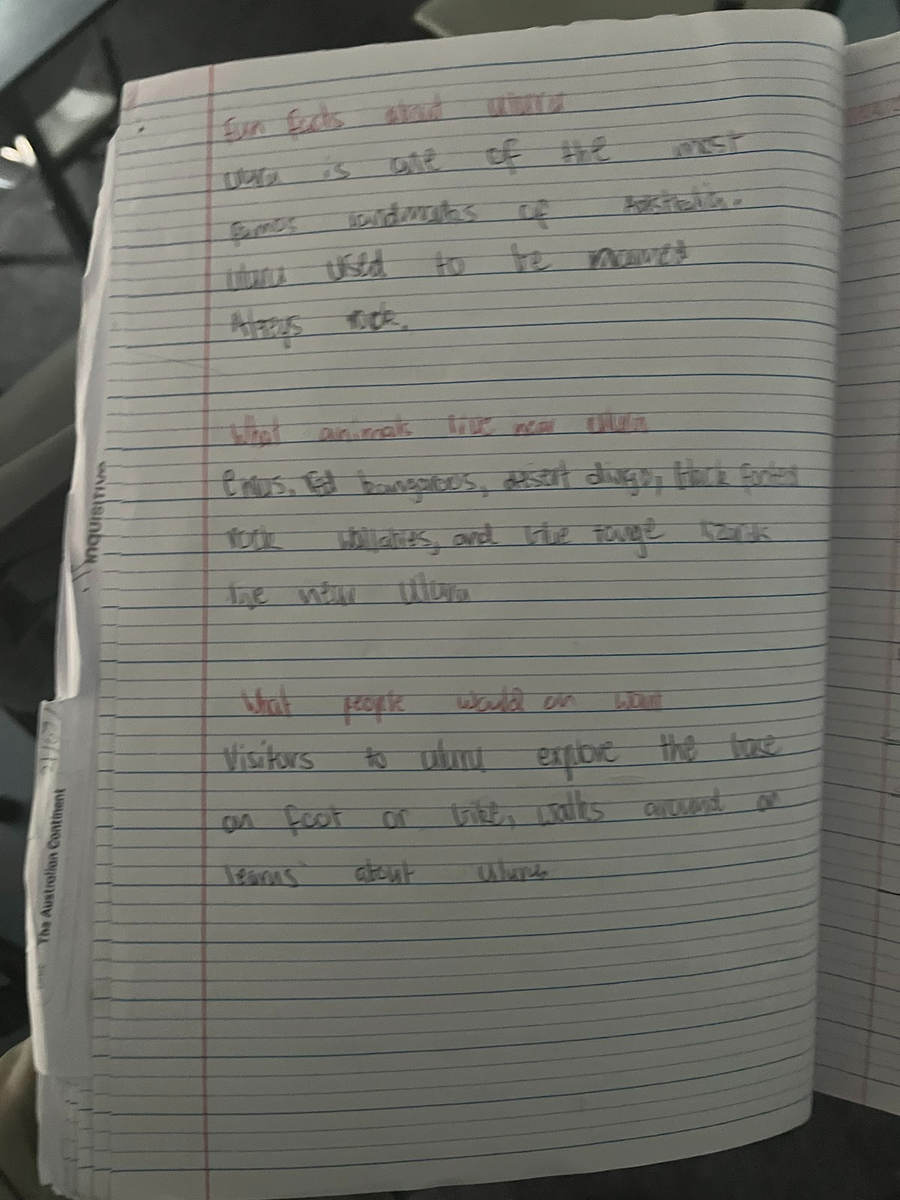 fun facts about uluru
uluru is one of the most
famos landmarks of Australia.
uluru used to be
rock.
What animals live near uluru
Emus, red kangaroos, desert dingo, black footed
rock wallabies, and
live near Uluru
What people would on
Visitors to uluru explore the base
on foot or bike, walks around or
learns about uluru
INQUISITIVE
The Australian Continent